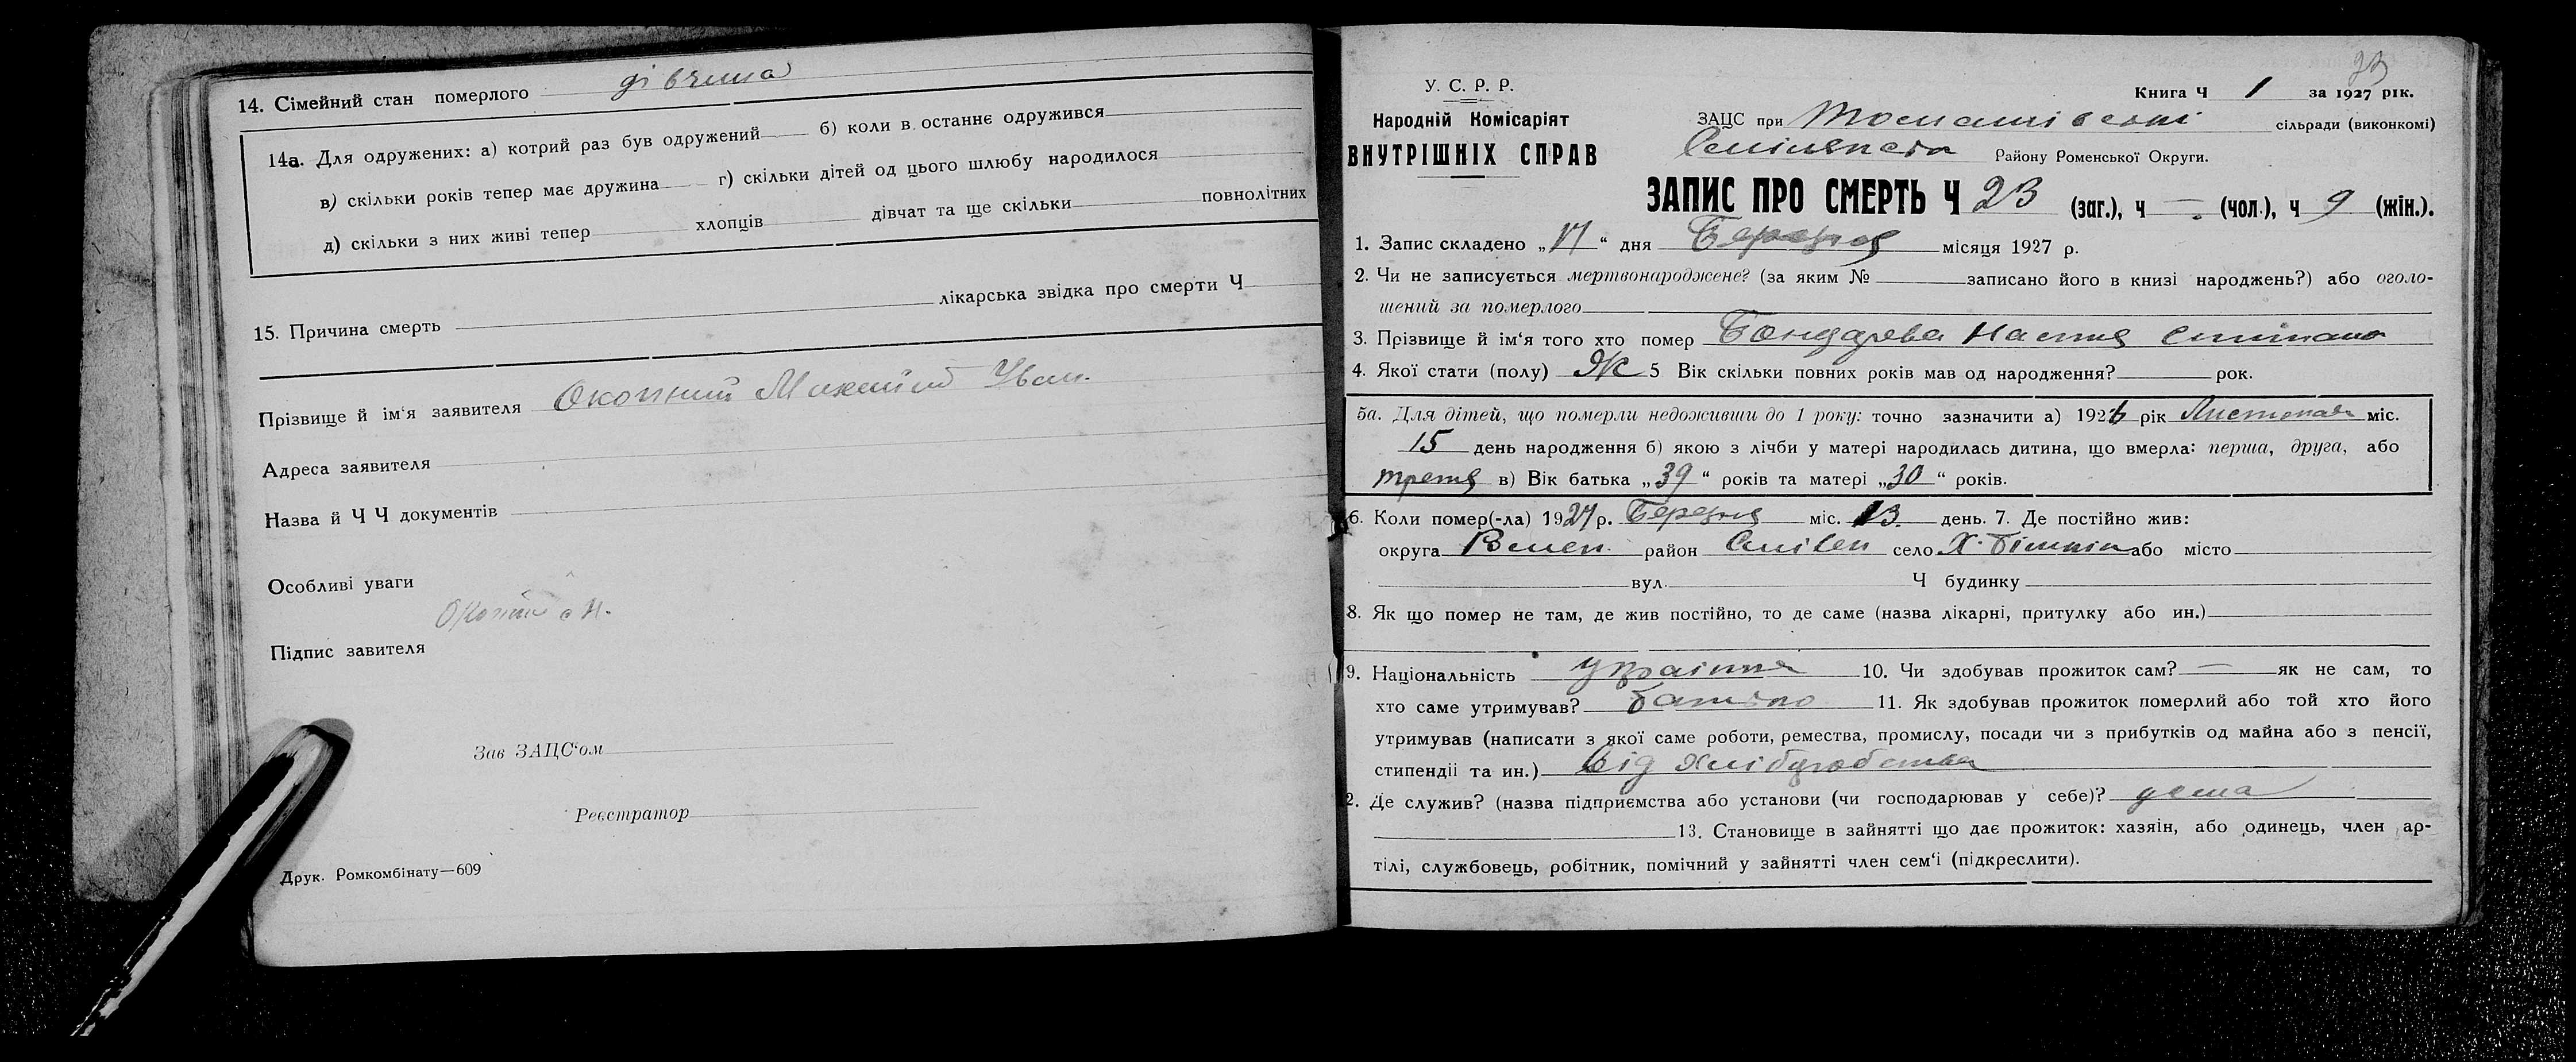 14. Сімейний стан померлого дівчина
14а. Для одружених: а) котрий раз був одружений б) коли в останнє одружився
в) скільки років тепер має дружина г) скільки дітей од цього шлюбу народилося
д) скільки з них живі тепер хлопців дівчат та ще скільки повнолітних
15. Причина смерть лікарська звідка про смерти Ч
Прізвище й ім'я заявителя Окопний Іван.
Адреса заявителя
Назва й Ч Ч документів
Особливі уваги
Підпис завителя
Зав ЗАЦС'ом
Реєстратор
Друк. Ромкомбінату—609
23
У. С. Р. Р.
Народній Комісаріят
ВНУТРІШНІХ СПРАВ
Книга Ч 1 за 1927 рік.
ЗАЦС при сільради (виконкомі)
Району Роменської Округи.
ЗАПИС ПРО СМЕРТЬ Ч 23 (заг.), ч — (чол.), ч 9 (жін.).
1. Запис складено „17“ дня Березня місяця 1927 р.
2. Чи не записується мертвонароджене? (за яким № записано його в книзі народжень?) або оголо-
шений за померлого
3. Прізвище й ім'я того хто помер Бондарева Настя
4. Якої стати (полу) Ж 5 Вік скільки повних років мав од народження? рок.
5а. Для дітей, що померли недоживши до 1 року: точно зазначити а) 1926 рік Листопада міс.
15 день народження б) якою з лічби у матері народилась дитина, що вмерла: перша, друга, або
третя в) Вік батька „39“ років та матері „30“ років.
6. Коли помер(-ла) 1927 р. Березня міс. 13 день. 7. Де постійно жив:
округа район село або місто
вул. Ч будинку
8. Як що помер не там, де жив постійно, то де саме (назва лікарні, притулку або ин.)
9. Національність українка 10. Чи здобував прожиток сам? — як не сам, то
хто саме утримував? батько 11. Як здобував прожиток померлий або той хто його
утримував (написати з якої саме роботи, ремества, промислу, посади чи з прибутків од майна або з пенсії,
стипендіі та ин.) від хліборобства
2. Де служив? (назва підприємства або установи (чи господарював у себе)? дома
13. Становище в зайнятті що дає прожиток: хазяін, або одинець, член ар-
тілі, службовець, робітник, помічний у зайнятті член сем'і (підкреслити).